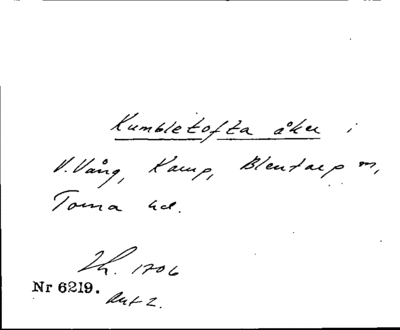 Kumbletofta åker i
V. Vång, Kamp, Blentarp m,
Torna hd.
Lh. 1706
Nr 6219.
Akt 2.